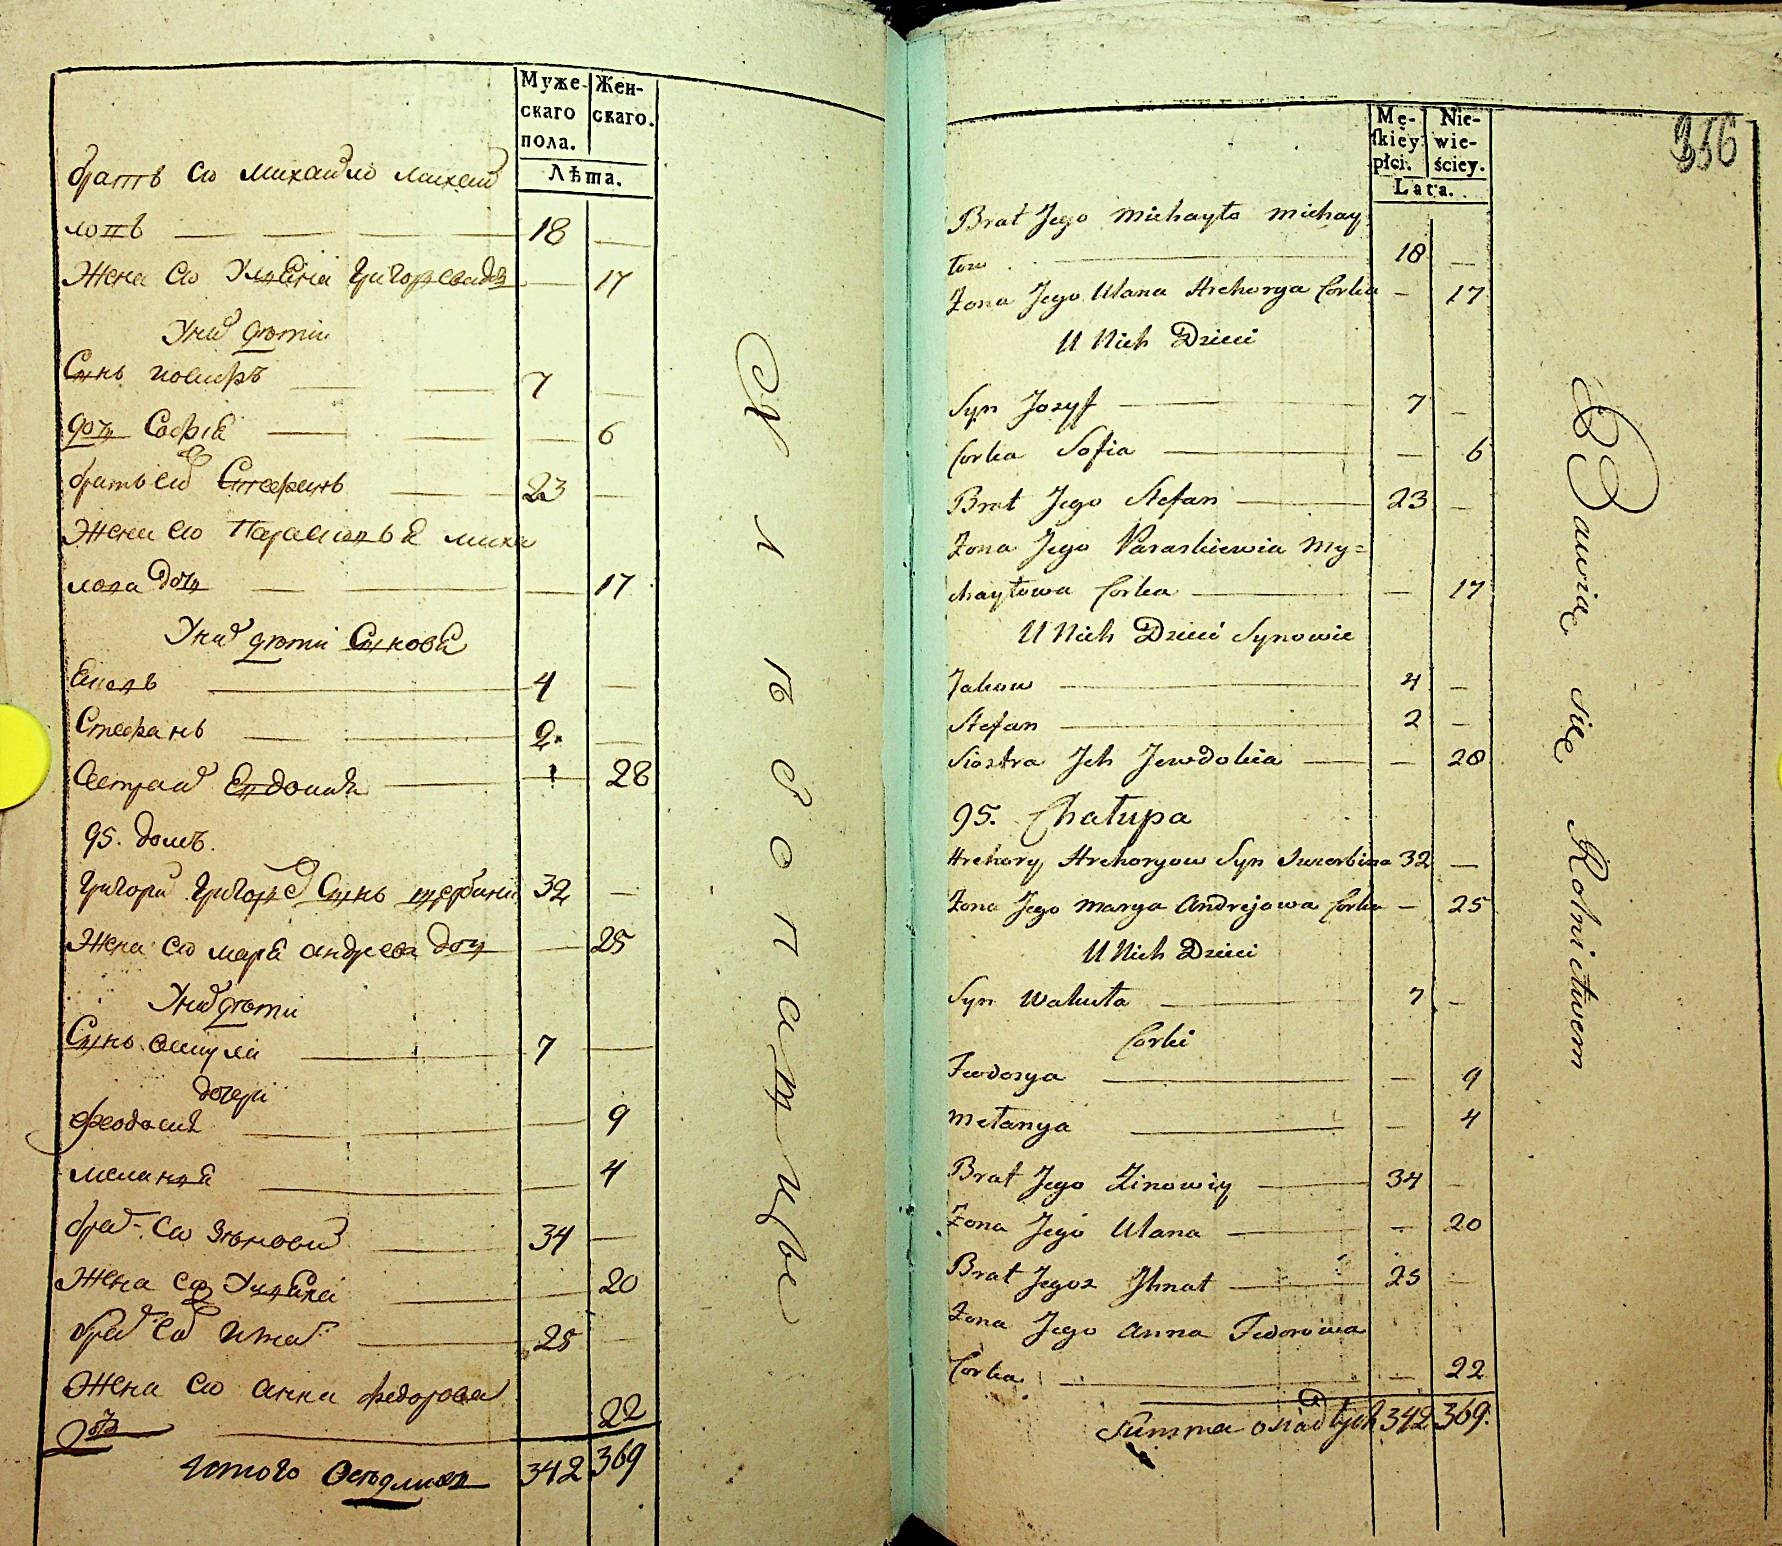 Муже-
скаго
пола.
Жен-
скаго.
Лѣта.
братъ его Михайло Михай
ловъ 18
Жена его Улияна Григорева доч 17
У них дѣти
Сынъ Иосифъ 7
дочь София 6
братъ его Стефанъ 23
Жена его Парасковъя Миха
лова дочь 17
У них дѣти Сынове
Яковъ 4
Стефанъ 2
Сестра их Евдокия 28
95. домъ.
Григори Григорев Сынъ щербина 32
Жена его Маря Андреева дочь 25
У них дѣти
Сынъ Вакула 7
дочери
Феодосия 9
Мелания 4
брат его Зѣновий 34
Жена его Улияна 20
брат его Игнат 25
Жена его Анна Федорова
дочь 22
Итого Оседлихъ 342 369
Хлѣбопашцые
356
Mę-
skiey
płci.
Nie-
wie-
ściey.
Lata.
Brat Jego Michayło Michay
łow 18
Zona Jego Ulana Hrehorya Corka 17
U Nich Dzieci
Syn Jozyf 7
Corka Sofia 6
Brat Jego Stefan 23
Zona Jego Paraskiewia My=
chayłowa Corka 17
U Nich Dzieci Synowie
Jakow 4
Stefan 2
Siostra Jch Jewdokia 28
95. Chałupa
Hrehory Hrehoryow Syn Szczerbina 32
Zona Jego Marya Andrejowa Corka 25
U Nich Dzieci
Syn Wakuła 7
Corki
Feodosya 9
Mełanya 4
Brat Jego Zinowiy 34
Zona Jego Ulana 20
Brat Jegoż Jhnat 25
Zona Jego Anna Fedorowa
Corka 22
Summa osiadłych 342 369.
Bawią się Rolnictwem